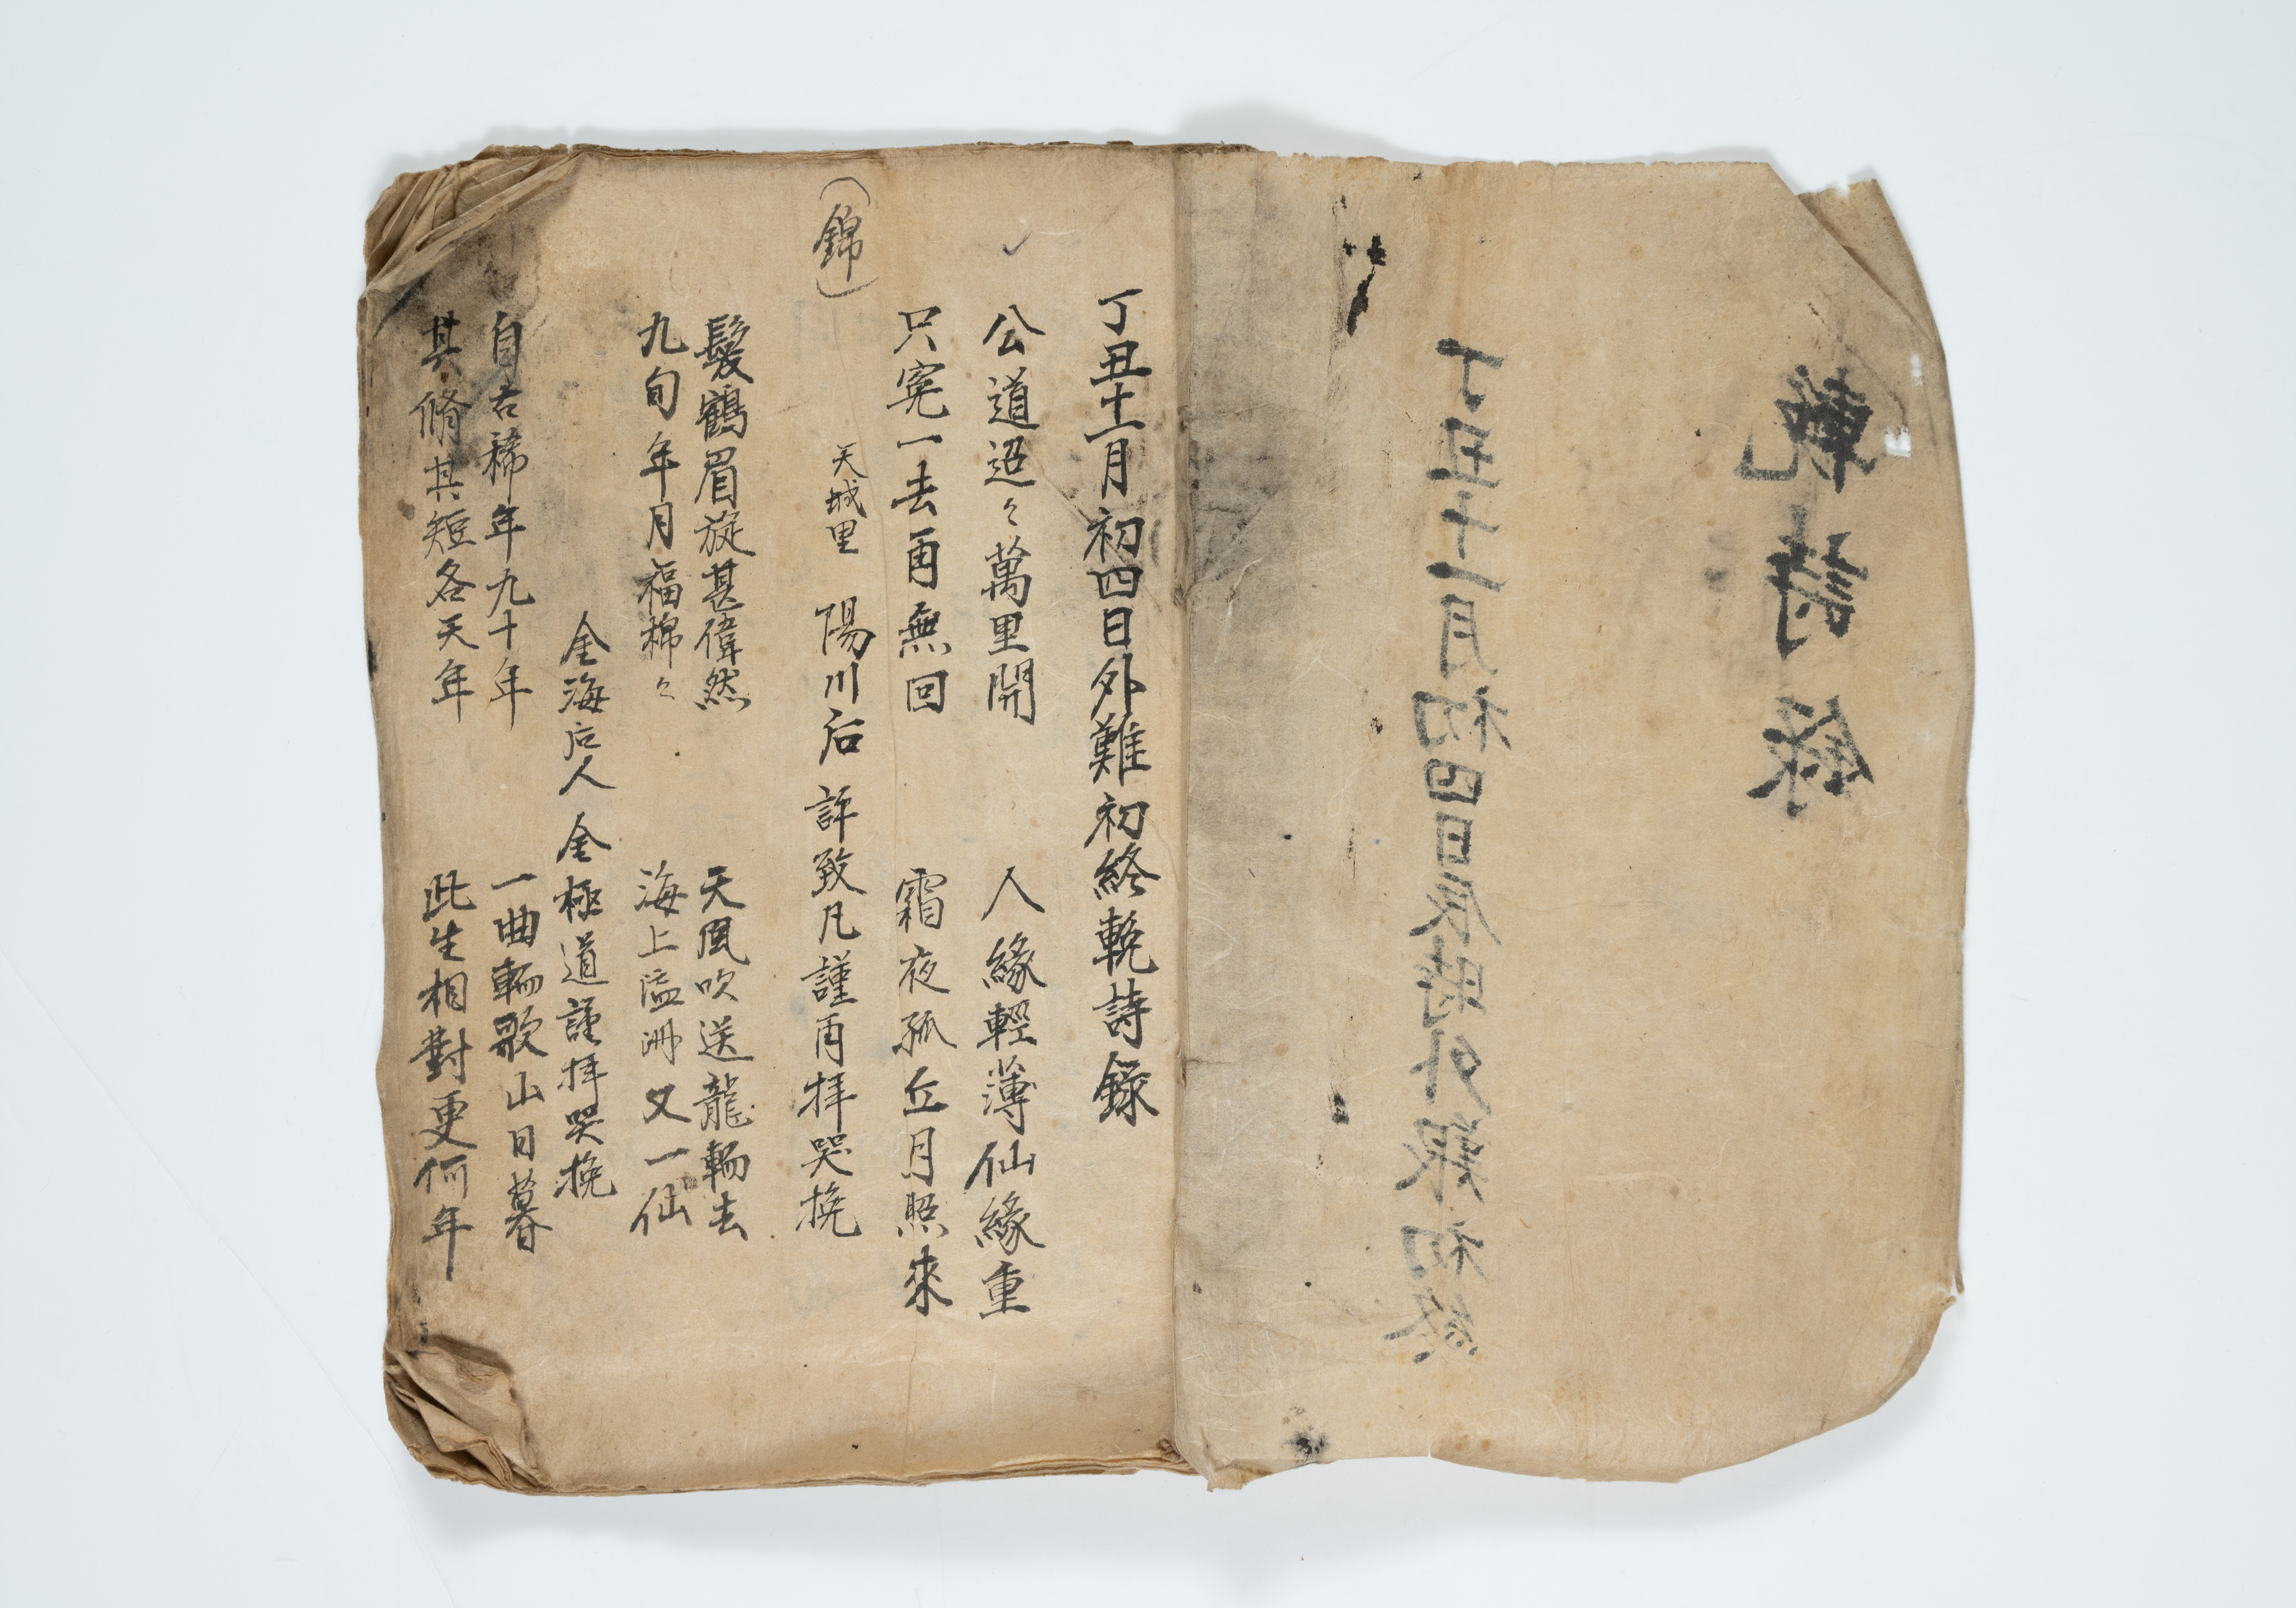 輓詩錄
丁丑十一月初四日辰時外艱初終
丁丑十一月初四日外難初終輓詩錄
公道迢々萬里開 人緣輕薄仙緣重
只寃一去再無回 霜夜孤丘月照來
(錦) 天城里 陽川后 許致凡謹再拝哭挽
鬂鶴眉旋甚偉然 天風吹送龍輀去
九旬年月福棉々 海上瀛洲又一仙
金海后人 金極道謹拝哭挽
自古稀年九十年 一曲輀歌山日暮
其脩其短各天年 此生相對更何年